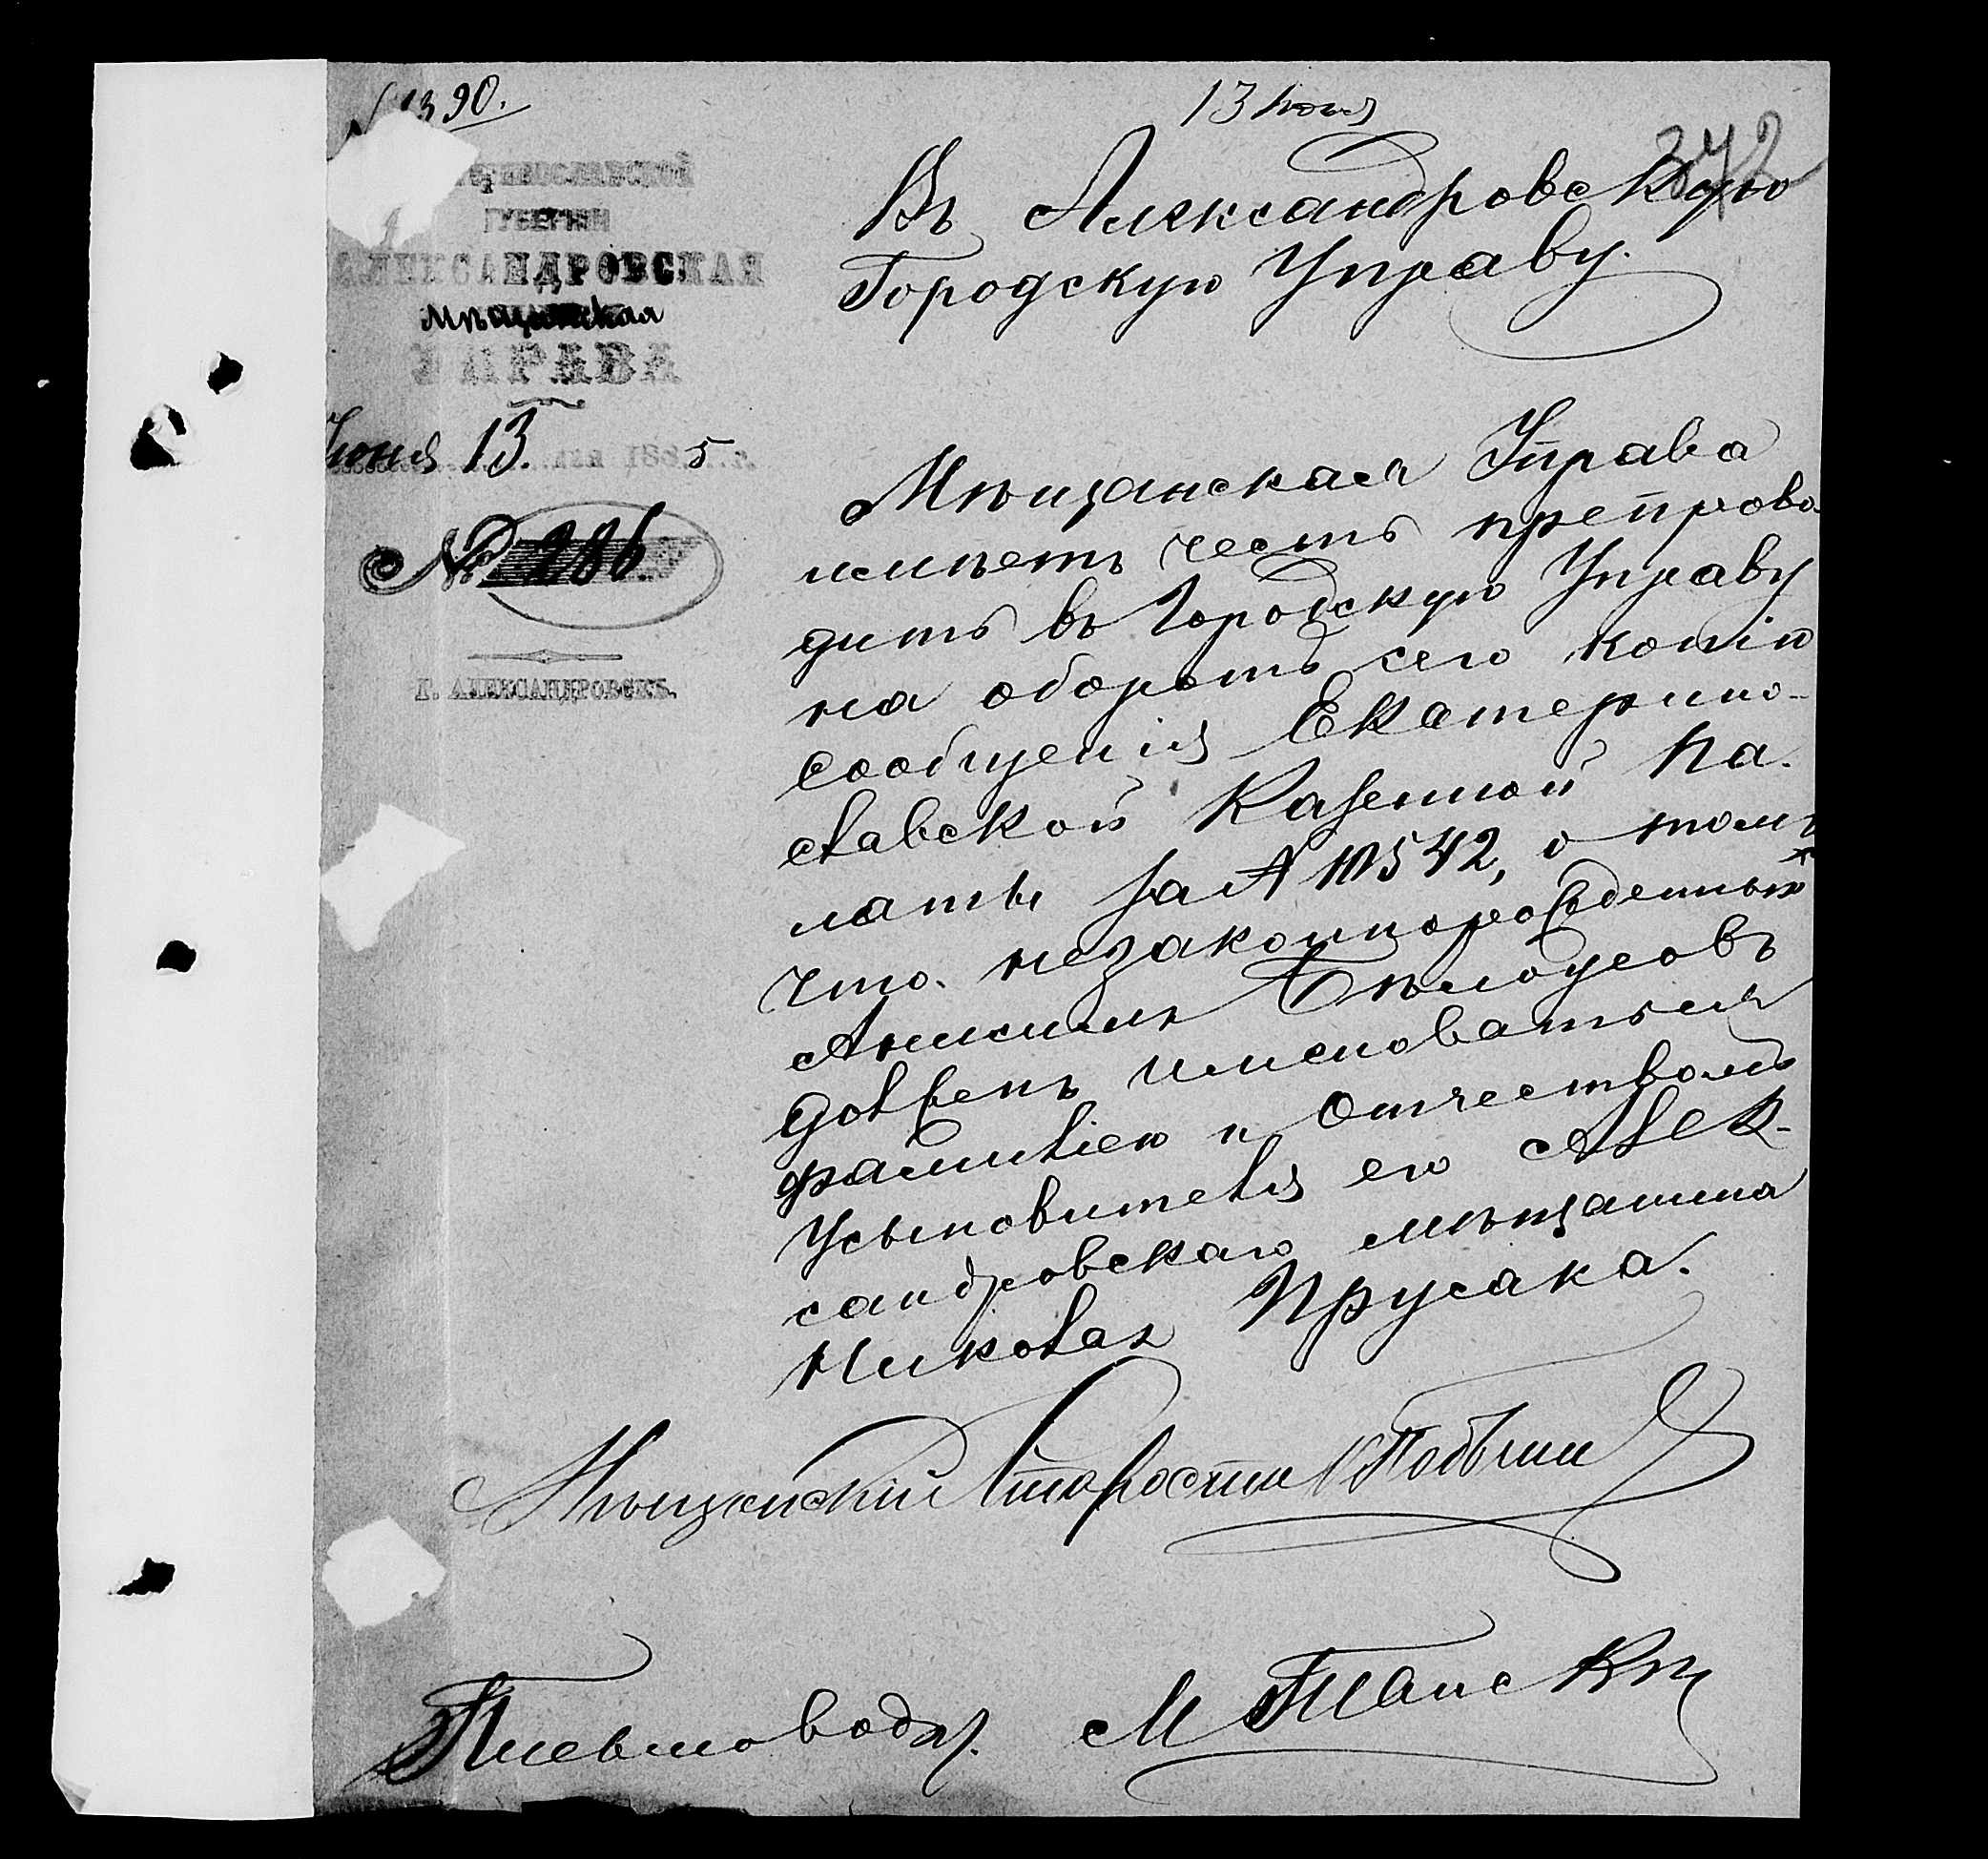 № 1390.
13 Июня
372
Екатеринославской
ГУБЕРНІИ
АЛЕКСАНДРОВСКАЯ
Мѣщанская
УПРАВА
Июня 13. дня 1885 г.
№ 286
Г. АЛЕКСАНДРОВСКЪ.
Въ Александровскую
Городскую Управу.
Мѣщанская Управа
имѣетъ честь препрово
дить въ Городскую Управу
на оборотѣ сего копію
сообщенія Екатерино-
славской Казенной Па-
латы за № 10542, о томъ
что незаконнорожденный
Анисимъ Бѣлоусовъ
долженъ именоваться
фамиліею и отчествомъ
усыновителя его Алек-
сандровскаго мѣщанина
Николая Прусака.
Мѣщанскій Староста
Письмоводт.